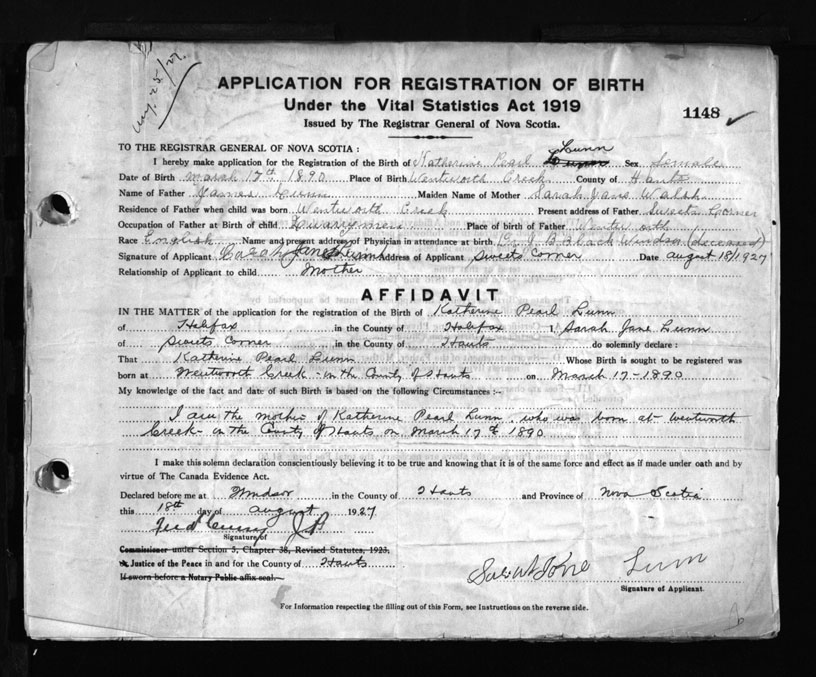 Aug. 25/27.
APPLICATION FOR REGISTRATION OF BIRTH
Under the Vital Statistics Act 1919
1148
Issued by The Registrar General of Nova Scotia.
TO THE REGISTRAR GENERAL OF NOVA SCOTIA:
Lunn
I hereby make application for the Registration of the Birth of Katherine Pearl Sex Female
Date of Birth March 17th 1890 Place of Birth Wentworth Creek County of Hants
Name of Father James Lunn Maiden Name of Mother Sarah Jane Walsh
Residence of Father when child was born Wentworth Creek Present address of Father Sweets Corner
Occupation of Father at Birth of child Quarryman Place of birth of Father Wentworth
Race English Name and present address of Physician in attendance at birth Dr. J. B. Black Windsor (deceased)
Signature of Applicant Sarah Jane Lunn Address of Applicant Sweets Corner Date August 18/1927
Relationship of Applicant to child Mother
AFFIDAVIT
IN THE MATTER of the application for the registration of the Birth of Katherine Pearl Lunn
of Halifax in the County of Halifax I, Sarah Jane Lunn
of Sweets Corner in the County of Hants do solemnly declare:
That Katherine Pearl Lunn Whose Birth is sought to be registered was
born at Wentworth Creek - in the County of Hants on March 17 - 1890
My knowledge of the fact and date of such Birth is based on the following Circumstances :-
I am the mother of Katherine Pearl Lunn, who was born at Wentworth
Creek - in the County of Hants on March 17th 1890
I make this solemn declaration conscientiously believing it to be true and knowing that it is of the same force and effect as if made under oath and by
virtue of The Canada Evidence Act.
Declared before me at Windsor in the County of Hants and Province of Nova Scotia
this 18th day of August 1927
J P
Signature of
Commissioner under Section 5, Chapter 38, Revised Statutes, 1923.
Justice of the Peace in and for the County of Hants
If sworn before a Notary Public affix seal.
Sarah Jane Lunn
Signature of Applicant.
For Information respecting the filling out of this Form, see Instructions on the reverse side.